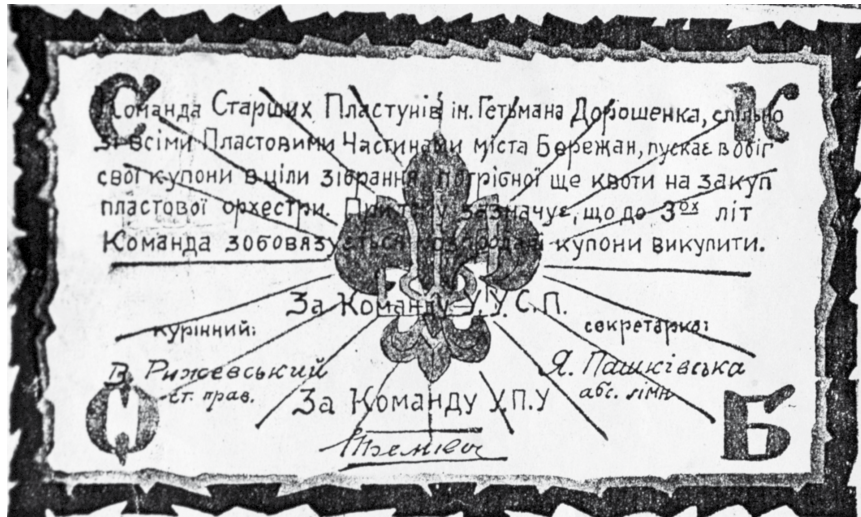 С К
Команда Старших Пластунів ім. Гетьмана Дорошенка, спільно
зі всіми Пластовими Частинами міста Бережан, пускає в обіг
свої купони в ціли зібрання потрібної ще квоти на закуп
пластової орхестри. При тому зазначує, що до 3ох літ
Команда зобовязується розпродані купони викупити.
За Команду У.У.С.П.
курінний: секретарка:
В. Рижевський Я. Пашківська
ст. прав. абс. гімн
За Команду У.П.У
Ф Б